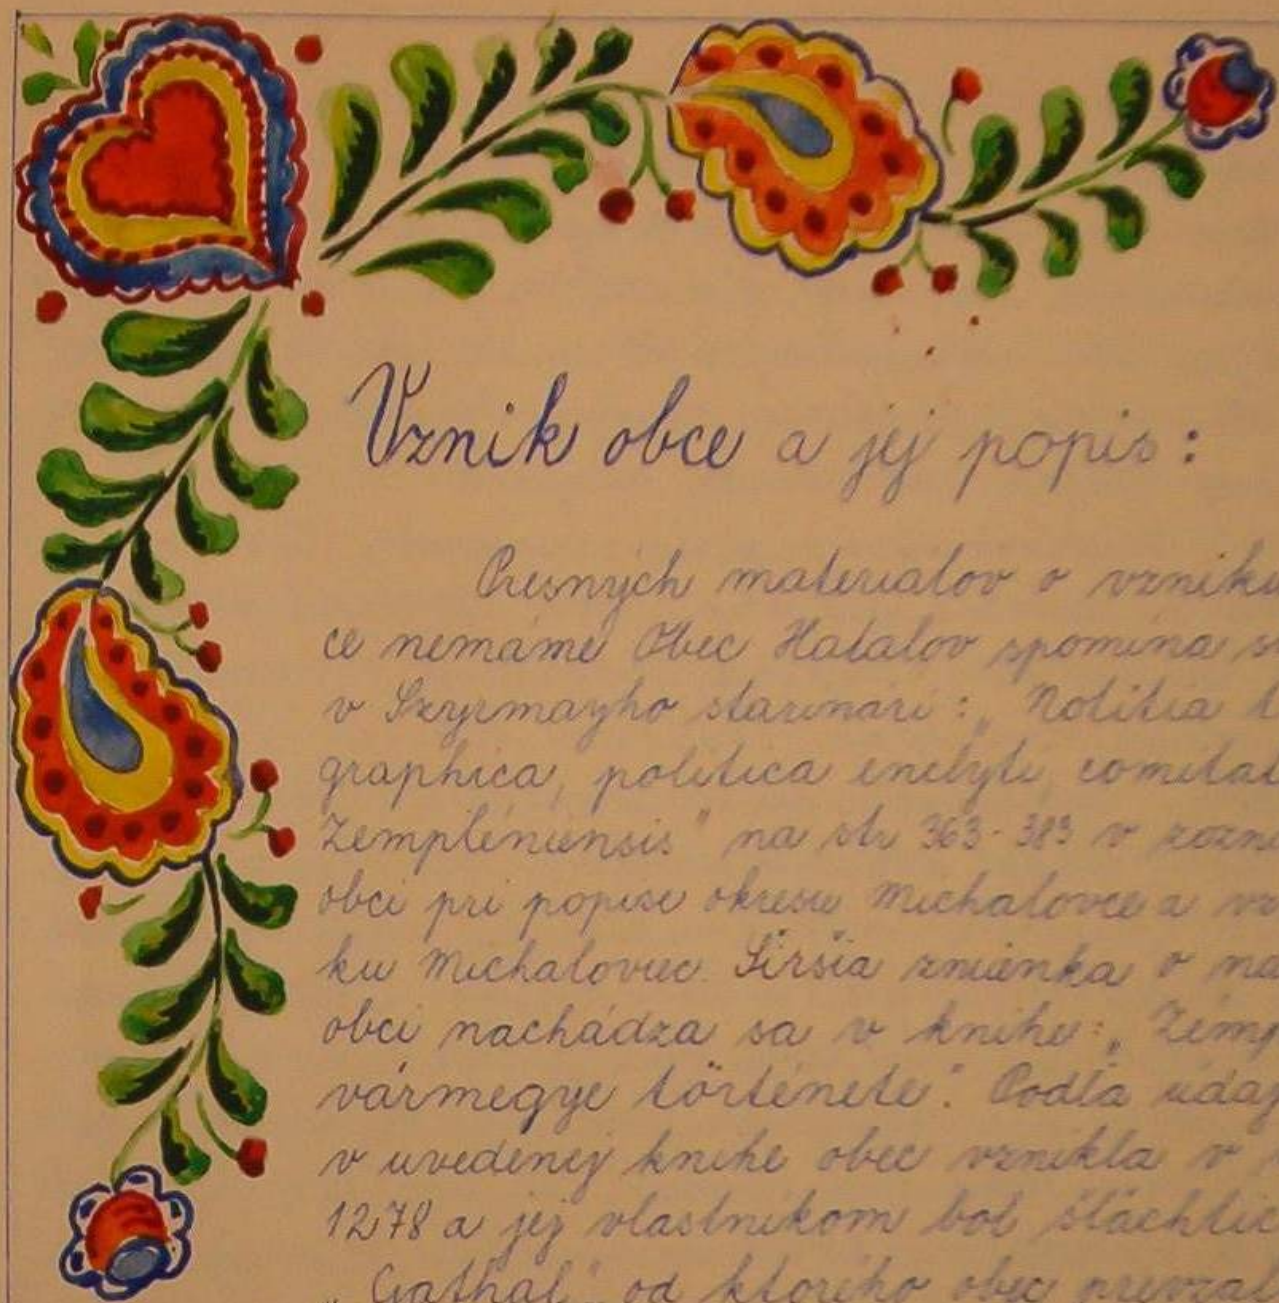 Vznik obce a jej popis:
Presných materiálov o vzniku
ce nemáme Obec Hatalov spomína
v Szyrmayho starinári: „Notitia
graphica, politica comitat
Zempléniensis" na str 363-383 v
obcí pri popise okresu Michalovce a
ku Michaloviec. Širšia zmienka o na
obci nachádza sa v knihe: „Zemp
vármegye törtenete". Podľa údaj
v uvedenej knihe obec vznikla v
1278 a jej vlastníkom bol šľachtic
„Gathal", od ktorého obec prevzal